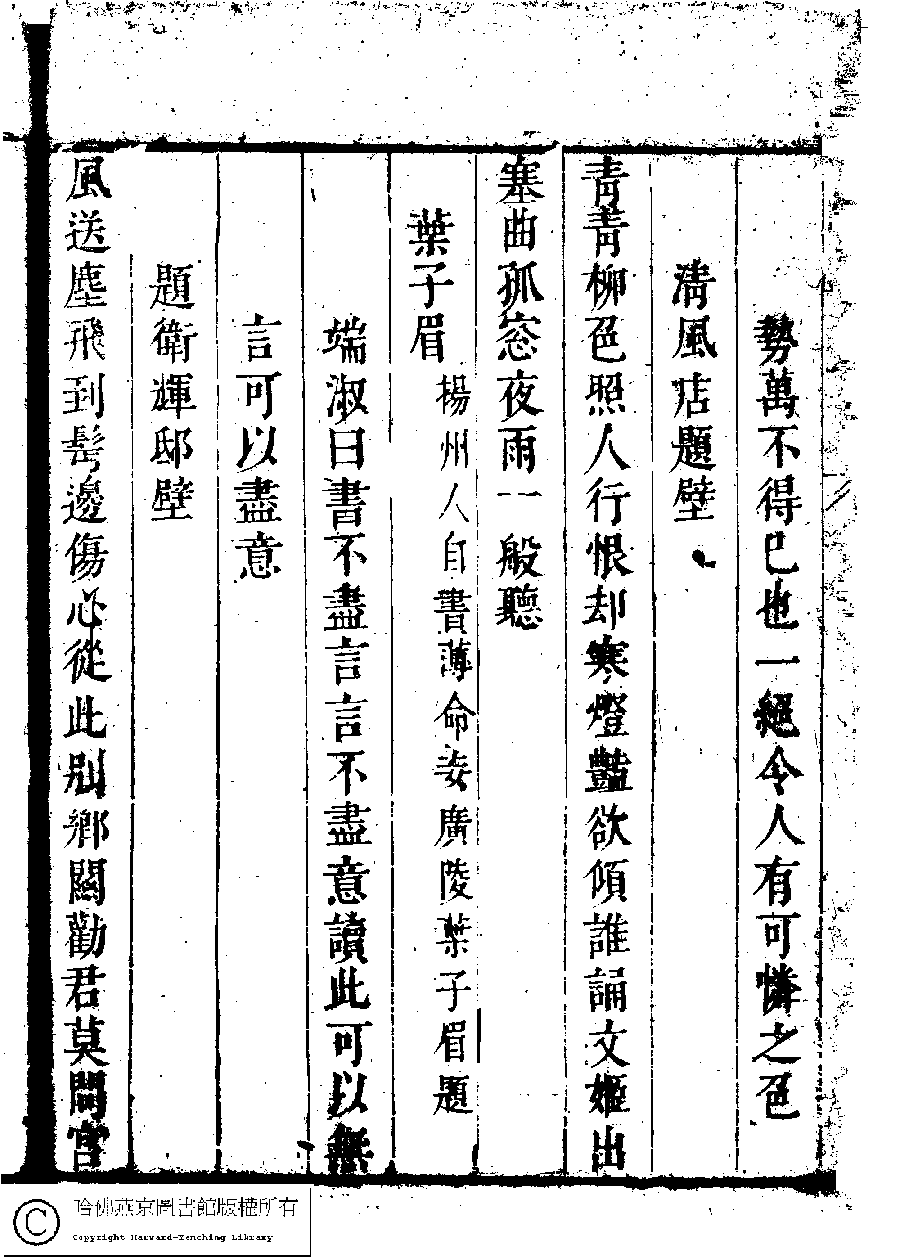 勢萬不得已也一絕令人有可憐之色
清風店題壁
青青柳色照人行恨却寒燈豔欲傾誰誦文姬出
塞曲孤窓夜雨一般聽
葉子眉 楊州人自書薄命妾廣陵葉子眉題
端淑曰書不盡言言不盡意讀此可以無
言可以盡意
題衛輝邸壁
風送塵飛到髩邊傷心從此別鄉關勸君莫問宮
哈佛燕京圖書館版權所有
Copyright Harvard-Yenching Library